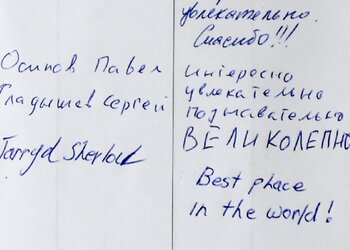 Осипов Павел
Гладышев Сергей
увлекательно.
Спасибо!!!
интересно
увлекательно
познавательно
ВЕЛИКОЛЕПНО
Best place
in the world!